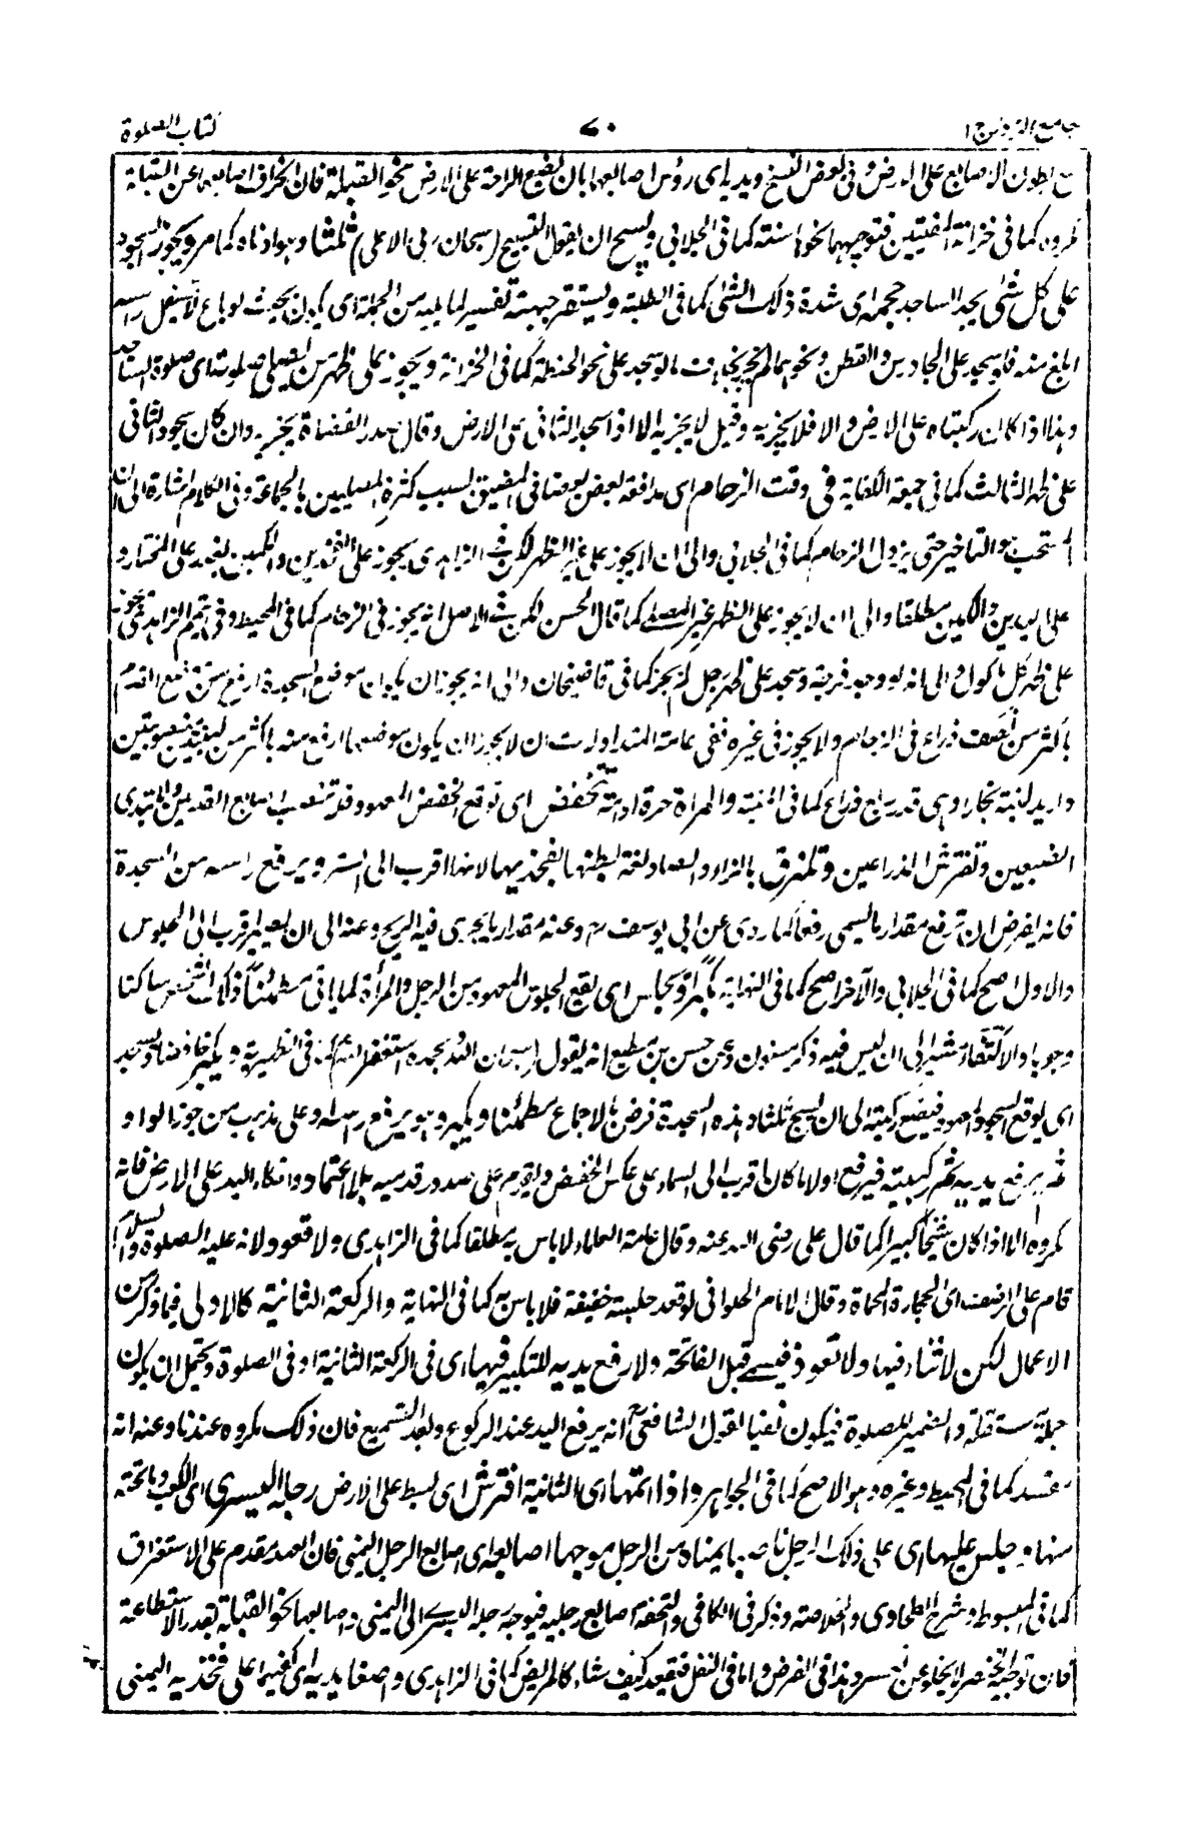 جامع الرموز ج ١
٧٠
كتاب الصلوة
بطون الاصابع على الارض وفى بعض النسخ ويديه اى رؤس اصابعهما بان يضع الراحة على الارض نحو القبلة فان انحراف اصابعها عن القبلة
مكروه كما فى خزانة المفتيين فتوجيهها نحوها سنة كما فى الجلابى ويسبح ان يقول التسبيح (سبحان ربى الاعلى) ثلثا وهو ادناه كما مر ويجوز السجود
على كل شئ يجد الساجد حجمه اى شدة ذلك الشئ كما فى الطلبة ويستقر جبهته تفسير لما يليه من الجملة اى يكون بحيث لو بالغ لا يسفل راسه
ابلغ منه فلو سجد على الجاورس والقطن ونحوهما لم يجز بخلاف ما لو سجد على نحو الحنطة كما فى الخزانة ويجوز على ظهر من يصلى صلوته اى صلوة الساجد
وهذا اذا كان ركبتاه على الارض والا فلا يجزيه وقيل لا يجزيه الا اذا سجد الثانى على الارض وقال صدر القضاة يجزيه وان كان سجود الثانى
على ظهر الثالث كما فى جمعة الكفاية فى وقت الزحام اى مدافعة بعض بعضا فى المضيق بسبب كثرة المصليين بالجماعة وفى الكلام اشارة الى ان
المستحب هو التاخير حتى يزول الزحام كما فى الجلابى والى ان لا يجوز على غير الظهر لكن فى الزاهدى يجوز على الفخذين والكمين بعذر على المختار و
على اليدين والكمين مطلقا والى ان لا يجوز على الظهر غير المصلى كما قال الحسن لكن فى الاصل انه يجوز فى الزحام كما فى المحيط وفى تيمم الزاهدى يجوز
على ظهر كل ماكول والى انه لو وجد فرجة وسجد على ظهر رجل لم يجز كما فى قاضيخان والى انه يجوز ان يكون موضع السجدة ارفع من موضع القدم
باكثر من نصف ذراع فى الزحام ولا يجوز فى غيره ففى عامة المتداولات ان لا يجوز ان يكون موضعها ارفع منه باكثر من لبنتين منصوبتين
واريد لبنة بخارا وهى قدر ربع ذراع كما فى المنية والمراة حرة او امة تخفض اى توقع الخفض المعهود فقد تنصب اصابع القدمين ولا تبدى
الضبعين وتفترش الذراعين وتلزق بالزاء والصاد لغة بطنها بفخذيها لانها اقرب الى الستر ويرفع راسه من السجدة
فانه يفرض ان ترفع مقدار ما يسمى رفعا كما روى عن ابى يوسف رح وعنه مقدار ما يجرى فيه الريح وعنه الى ان يصير اقرب الى الجلوس
والاول اصح كما فى الجلابى والآخر اصح كما فى النهاية مكبرا ويجلس اى يقع الجلوس المعهود من الرجل والمرأة كما ياتى مطمئنا وذلك الشخص ساكنا
وجوبا والاكتفاء مشير الى ان ليس فيه ذكر مسنون وعن حسن بن مطيع انه يقول سبحان الله وبحمده استغفر الله كما فى الظهيرية ويكبر خافضا ويسجد
اى يوقع السجود المعهود فيضع ركبتيه الى ان يسبح ثلثا وهذه السجدة فرض بالاجماع مطمئنا ويكبر وهو يرفع راسه وعلى مذهب من جوز الواو
ثم يرفع يديه ثم ركبتيه فيرفع اولا ما كان اقرب الى السماء على عكس الخفض ويقوم على صدور قدميه بلا اعتماد واتكاء اليد على الارض فانه
مكروه الا اذا كان شيخا كبيرا كما قال على رضى الله عنه وقال عامة العلماء لا باس به مطلقا كما فى الزاهدى ولا قعود لانه عليه الصلوة والسلام
قام على الرضف اى الحجارة المحماة وقال الامام الحلوانى لو قعد جلسة خفيفة فلا باس به كما فى النهاية والركعة الثانية كالاولى فيما ذكر من
الاعمال لكن لا ثناء فيها ولا تعوذ فيسمى قبل الفاتحة ولا رفع يديه للتكبير فيها اى فى الركعة الثانية او فى الصلوة ويحتمل ان يكون
جملة مستقلة والضمير للصلوة فيكون نفيا لقول الشافعى انه يرفع اليد عند الركوع وبعد التسميع فان ذلك مكروه عندنا وعنه انه
مفسد كما فى المحيط وغيره وهو الاصح كما فى الجواهر واذا اتمها اى الثانية افترش اى بسط على الارض رجله اليسرى اى الكعب وما تحته
منها وجلس عليها اى على ذلك الرجل ناصبا يمناه من الرجل موجها اصابعه اى اصابع الرجل اليمنى فان العهد مقدم على الاستغراق
كما فى المبسوط وشرح الطحاوى والخلاصة وذكر فى الكافى والتحفة اصابع رجليه فيوجه رجله اليسرى الى اليمنى واصابعها نحو القبلة بقدر الاستطاعة
فان توجيه الخنصر لا يخلو عن عسر وهذا فى الفرض واما فى النفل فتقعد كيف شاء كالمريض كما فى الزاهدى واضعا يديه اى كفيها على فخذيه اليمنى